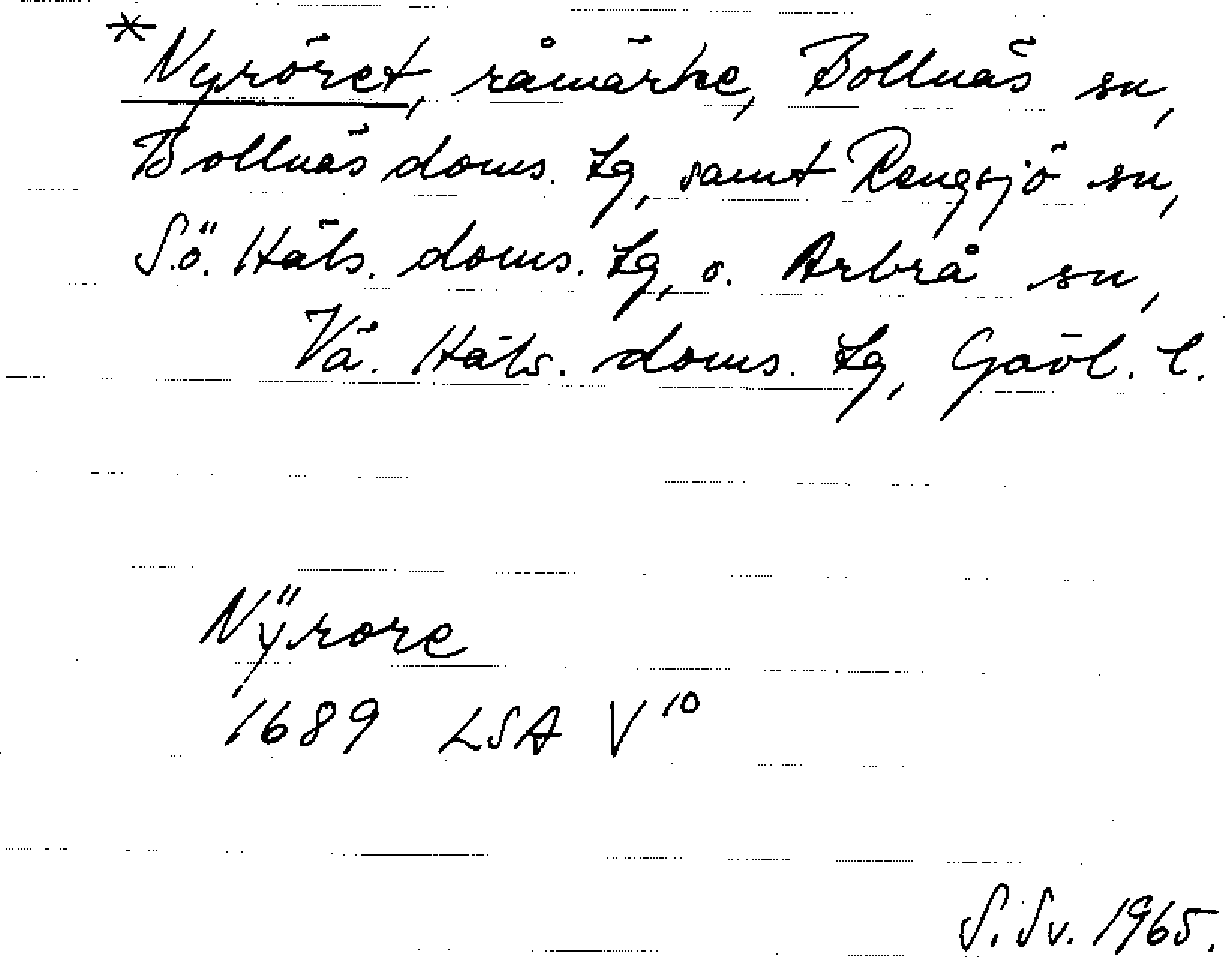 *Nyröret, råmärke, Bollnäs sn,
Bollnäs doms. tg, samt Rengsjö sn,
S.ö. Häls. doms. tg, o. Arbrå sn,
Vä. Häls. doms. tg, Gävl. l.
Nÿrore
1689 LSA V¹⁰
S. Sv. 1965.